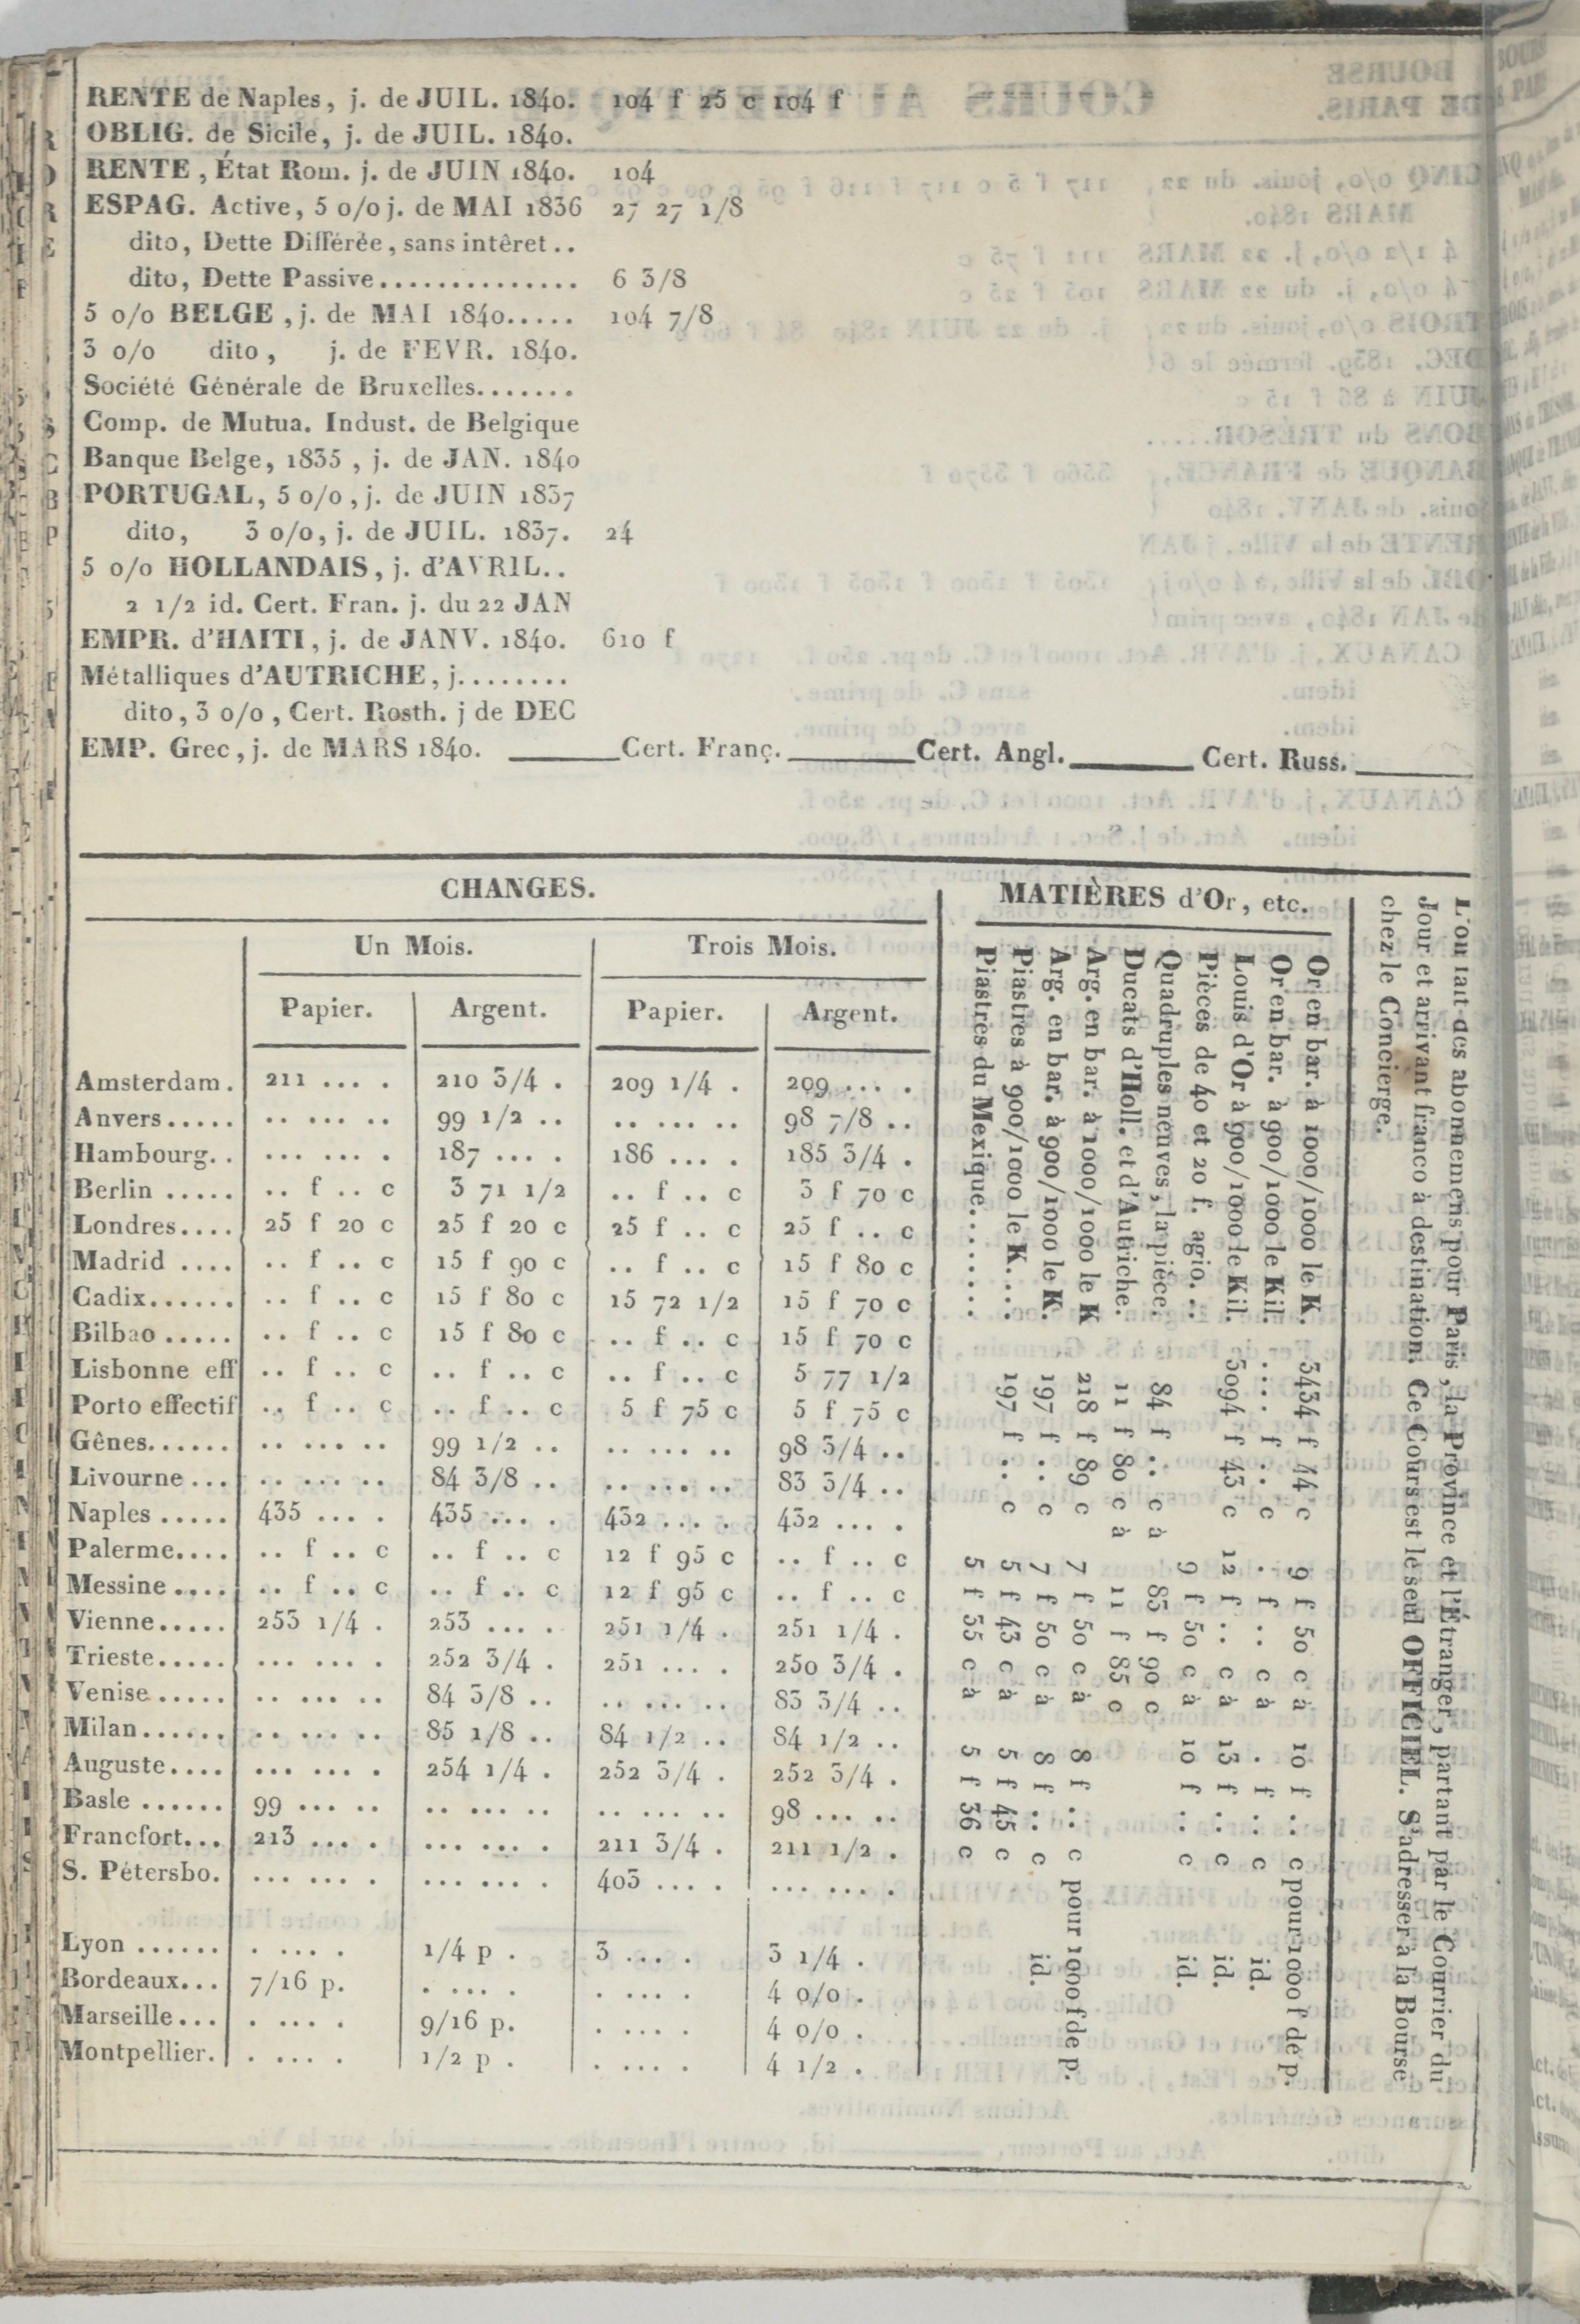 RENTE de Naples, j. de JUIL. 1840. 104 f 25 c 104 f
OBLIG. de Sicile, j. de JUIL. 1840.
RENTE, État Rom. j. de JUIN 1840. 104
ESPAG. Active, 5 o/o j. de MAI 1836 27 27 1/8
dito, Dette Différée, sans intêret..
dito, Dette Passive.............. 6 3/8
5 o/o BELGE, j. de MAI 1840..... 104 7/8
3 o/o dito, j. de FEVR. 1840.
Société Générale de Bruxelles.......
Comp. de Mutua. Indust. de Belgique
Banque Belge, 1835, j. de JAN. 1840
PORTUGAL, 5 o/o, j. de JUIN 1837
dito, 3 o/o, j. de JUIL. 1837. 24
5 o/o HOLLANDAIS, j. d'AVRIL..
2 1/2 id. Cert. Fran. j. du 22 JAN
EMPR. d'HAITI, j. de JANV. 1840. 610 f
Métalliques d'AUTRICHE, j........
dito, 3 o/o, Cert. Rosth. j de DEC
EMP. Grec, j. de MARS 1840. ______Cert. Franç.______Cert. Angl.______ Cert. Russ.______
CHANGES.
Un Mois. Trois Mois.
Papier. Argent. Papier. Argent.
Amsterdam. 211 ... . 210 3/4 . 209 1/4 . 209 ... .
Anvers..... .. ... .. 99 1/2 .. .. ... .. 98 7/8 ..
Hambourg.. ... ... . 187 ... . 186 ... . 185 3/4 .
Berlin ..... .. f .. c 3 71 1/2 .. f .. c 3 f 70 c
Londres.... 25 f 20 c 25 f 20 c 25 f .. c 25 f .. c
Madrid .... .. f .. c 15 f 90 c .. f .. c 15 f 80 c
Cadix...... .. f .. c 15 f 80 c 15 72 1/2 15 f 70 c
Bilbao ..... .. f .. c 15 f 80 c .. f .. c 15 f 70 c
Lisbonne eff .. f .. c .. f .. c .. f .. c 5 77 1/2
Porto effectif .. f .. c .. f .. c 5 f 75 c 5 f 75 c
Gênes...... .. ... .. 99 1/2 .. .. ... .. 98 3/4 ..
Livourne ... .. ... .. 84 3/8 .. .. ... .. 83 3/4 ..
Naples ..... 435 ... . 435 ... . 432 ... . 432 ... .
Palerme.... .. f .. c .. f .. c 12 f 95 c .. f .. c
Messine .... .. f .. c .. f .. c 12 f 95 c .. f .. c
Vienne..... 253 1/4 . 253 ... . 251 1/4 . 251 1/4 .
Trieste..... ... ... . 252 3/4 . 251 ... . 250 3/4 .
Venise ..... .. ... .. 84 3/8 .. .. ... .. 83 3/4 ..
Milan...... .. ... .. 85 1/8 .. 84 1/2 .. 84 1/2 ..
Auguste.... ... ... . 254 1/4 . 252 3/4 . 252 3/4 .
Basle ...... 99 ... .. .. ... .. .. ... .. 98 ... ..
Francfort... 213 ... . ... ... . 211 3/4 . 211 1/2 .
S. Pétersbo. ... ... . ... ... . 403 ... . ... ... .
Lyon ...... . ... . 1/4 p . 3 ... . 3 1/4 .
Bordeaux... 7/16 p. . ... . . ... . 4 o/o .
Marseille... . ... . 9/16 p. . ... . 4 o/o .
Montpellier. . ... . 1/2 p . . ... . 4 1/2 .
MATIÈRES d'Or, etc.
Or en bar. à 1000/1000 le K. 3434 f 44 c 9 f 50 c à 10 f .. c pour 1000 f de p.
Or en bar. à 900/1000 le Kil. .... f .. c . f .. c à . f .. c id.
Louis d'Or à 900/1000 le Kil. 3094 f 43 c 12 f .. c à 13 f .. c id.
Pièces de 40 et 20 f. agio... 9 f 50 c à 10 f .. c id.
Quadruples neuves, la pièce. 84 f .. c à 83 f 90 c
Ducats d'Holl. et d'Autriche. 11 f 80 c à 11 f 85 c
Arg. en bar. à 1000/1000 le K 218 f 89 c 7 f 50 c à 8 f .. c pour 1000 f de p.
Arg. en bar. à 900/1000 le K. 197 f .. c 7 f 50 c à 8 f .. c id.
Piastres à 900/1000 le K.... 197 f .. c 5 f 43 c à 5 f 45 c
Piastres du Mexique........ 5 f 35 c à 5 f 36 c
L'on fait des abonnemens pour Paris, la Province et l'Étranger, partant par le Courrier du
Jour et arrivant franco à destination. Ce Cours est le seul OFFICIEL. S'adresser à la Bourse
chez le Concierge.